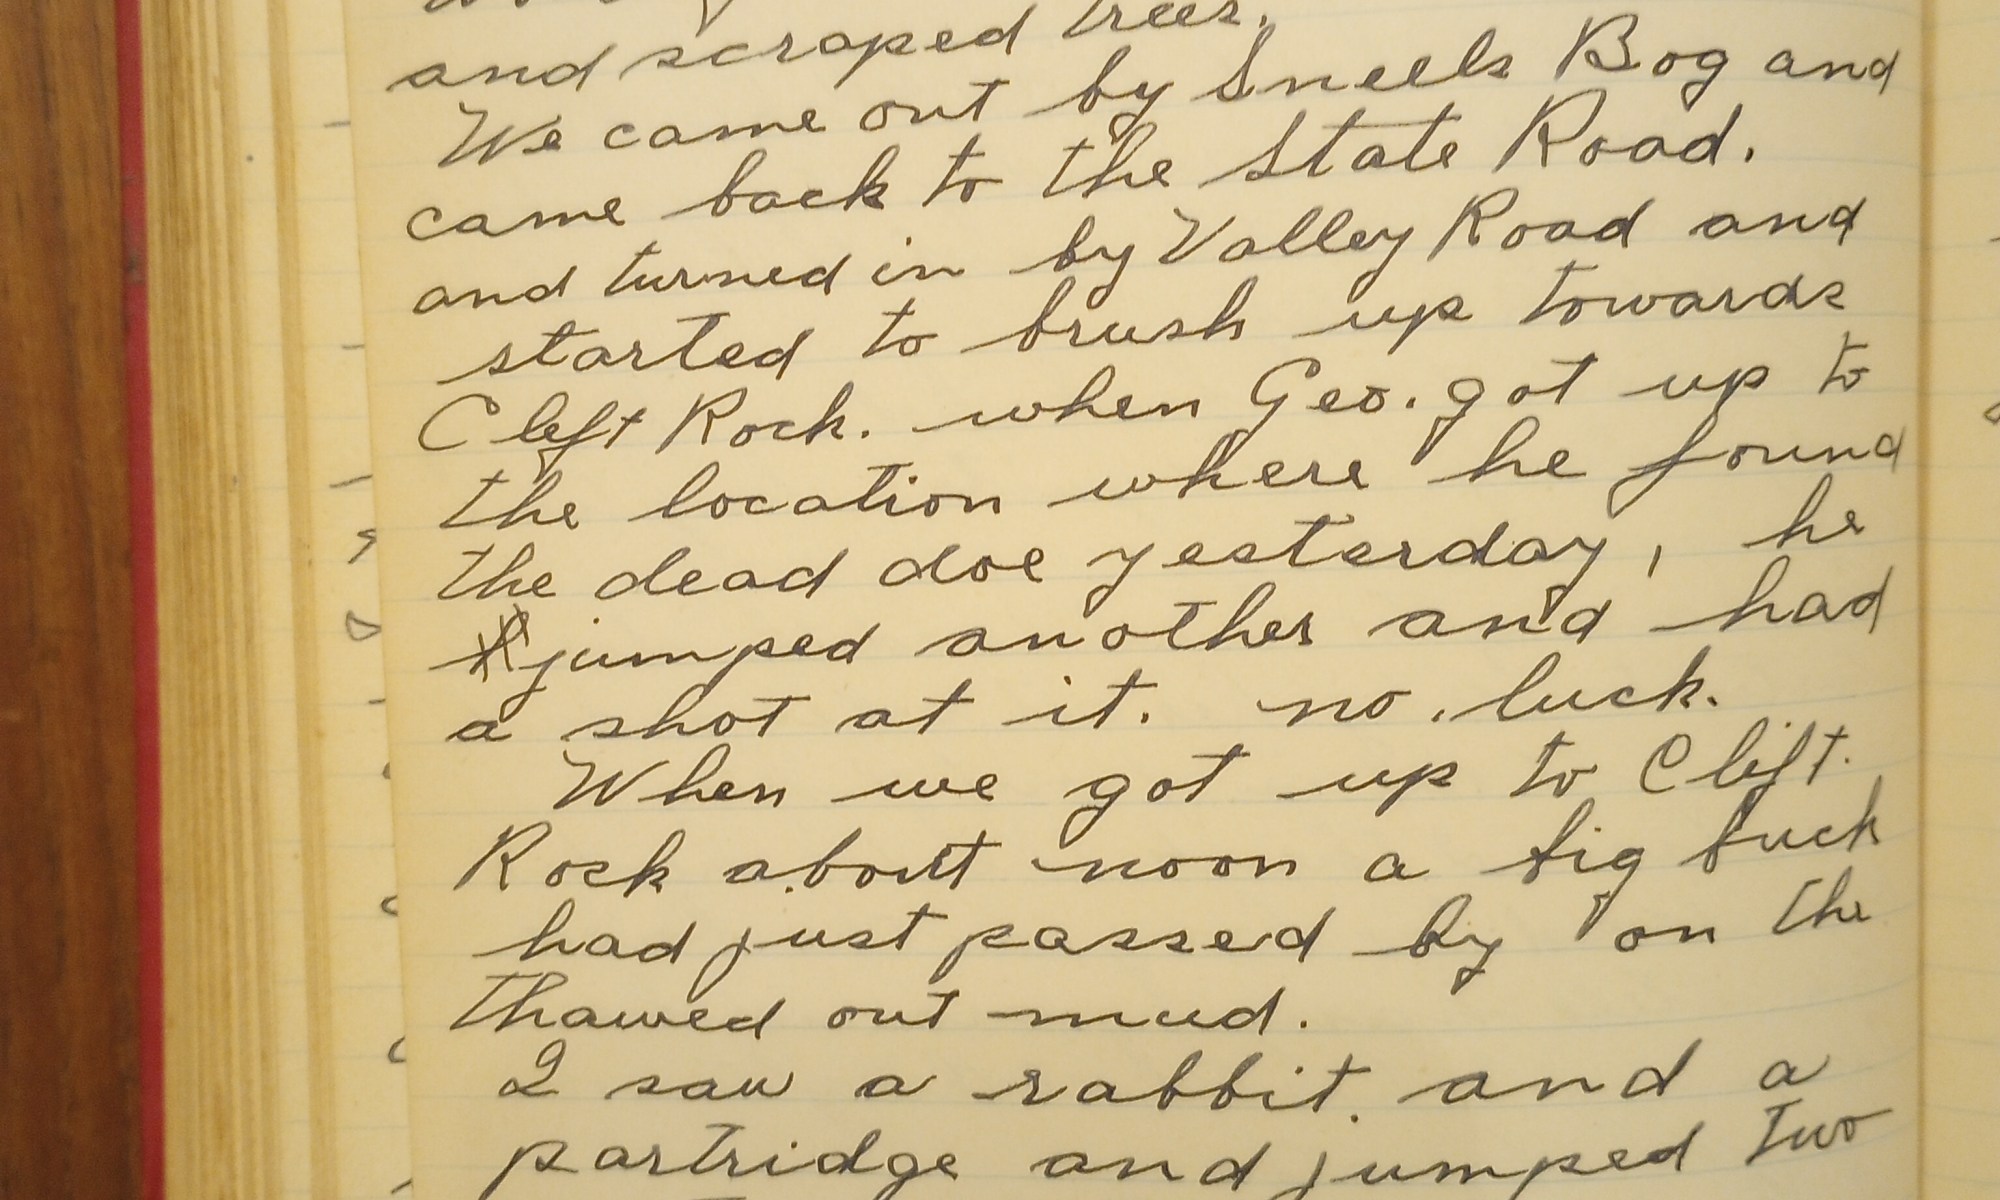 and scraped trees.
We came out by Sneels Bog and
came back to the State Road.
and turned in by Valley Road and
started to brush up towards
Cleft Rock. when Geo. got up to
the location where he found
the dead doe yesterday, he
jumped another and had
a shot at it. no. luck.
When we got up to Clift.
Rock about noon a big buck
had just passed by on the
thawed out mud.
I saw a rabbit. and a
partridge and jumped two